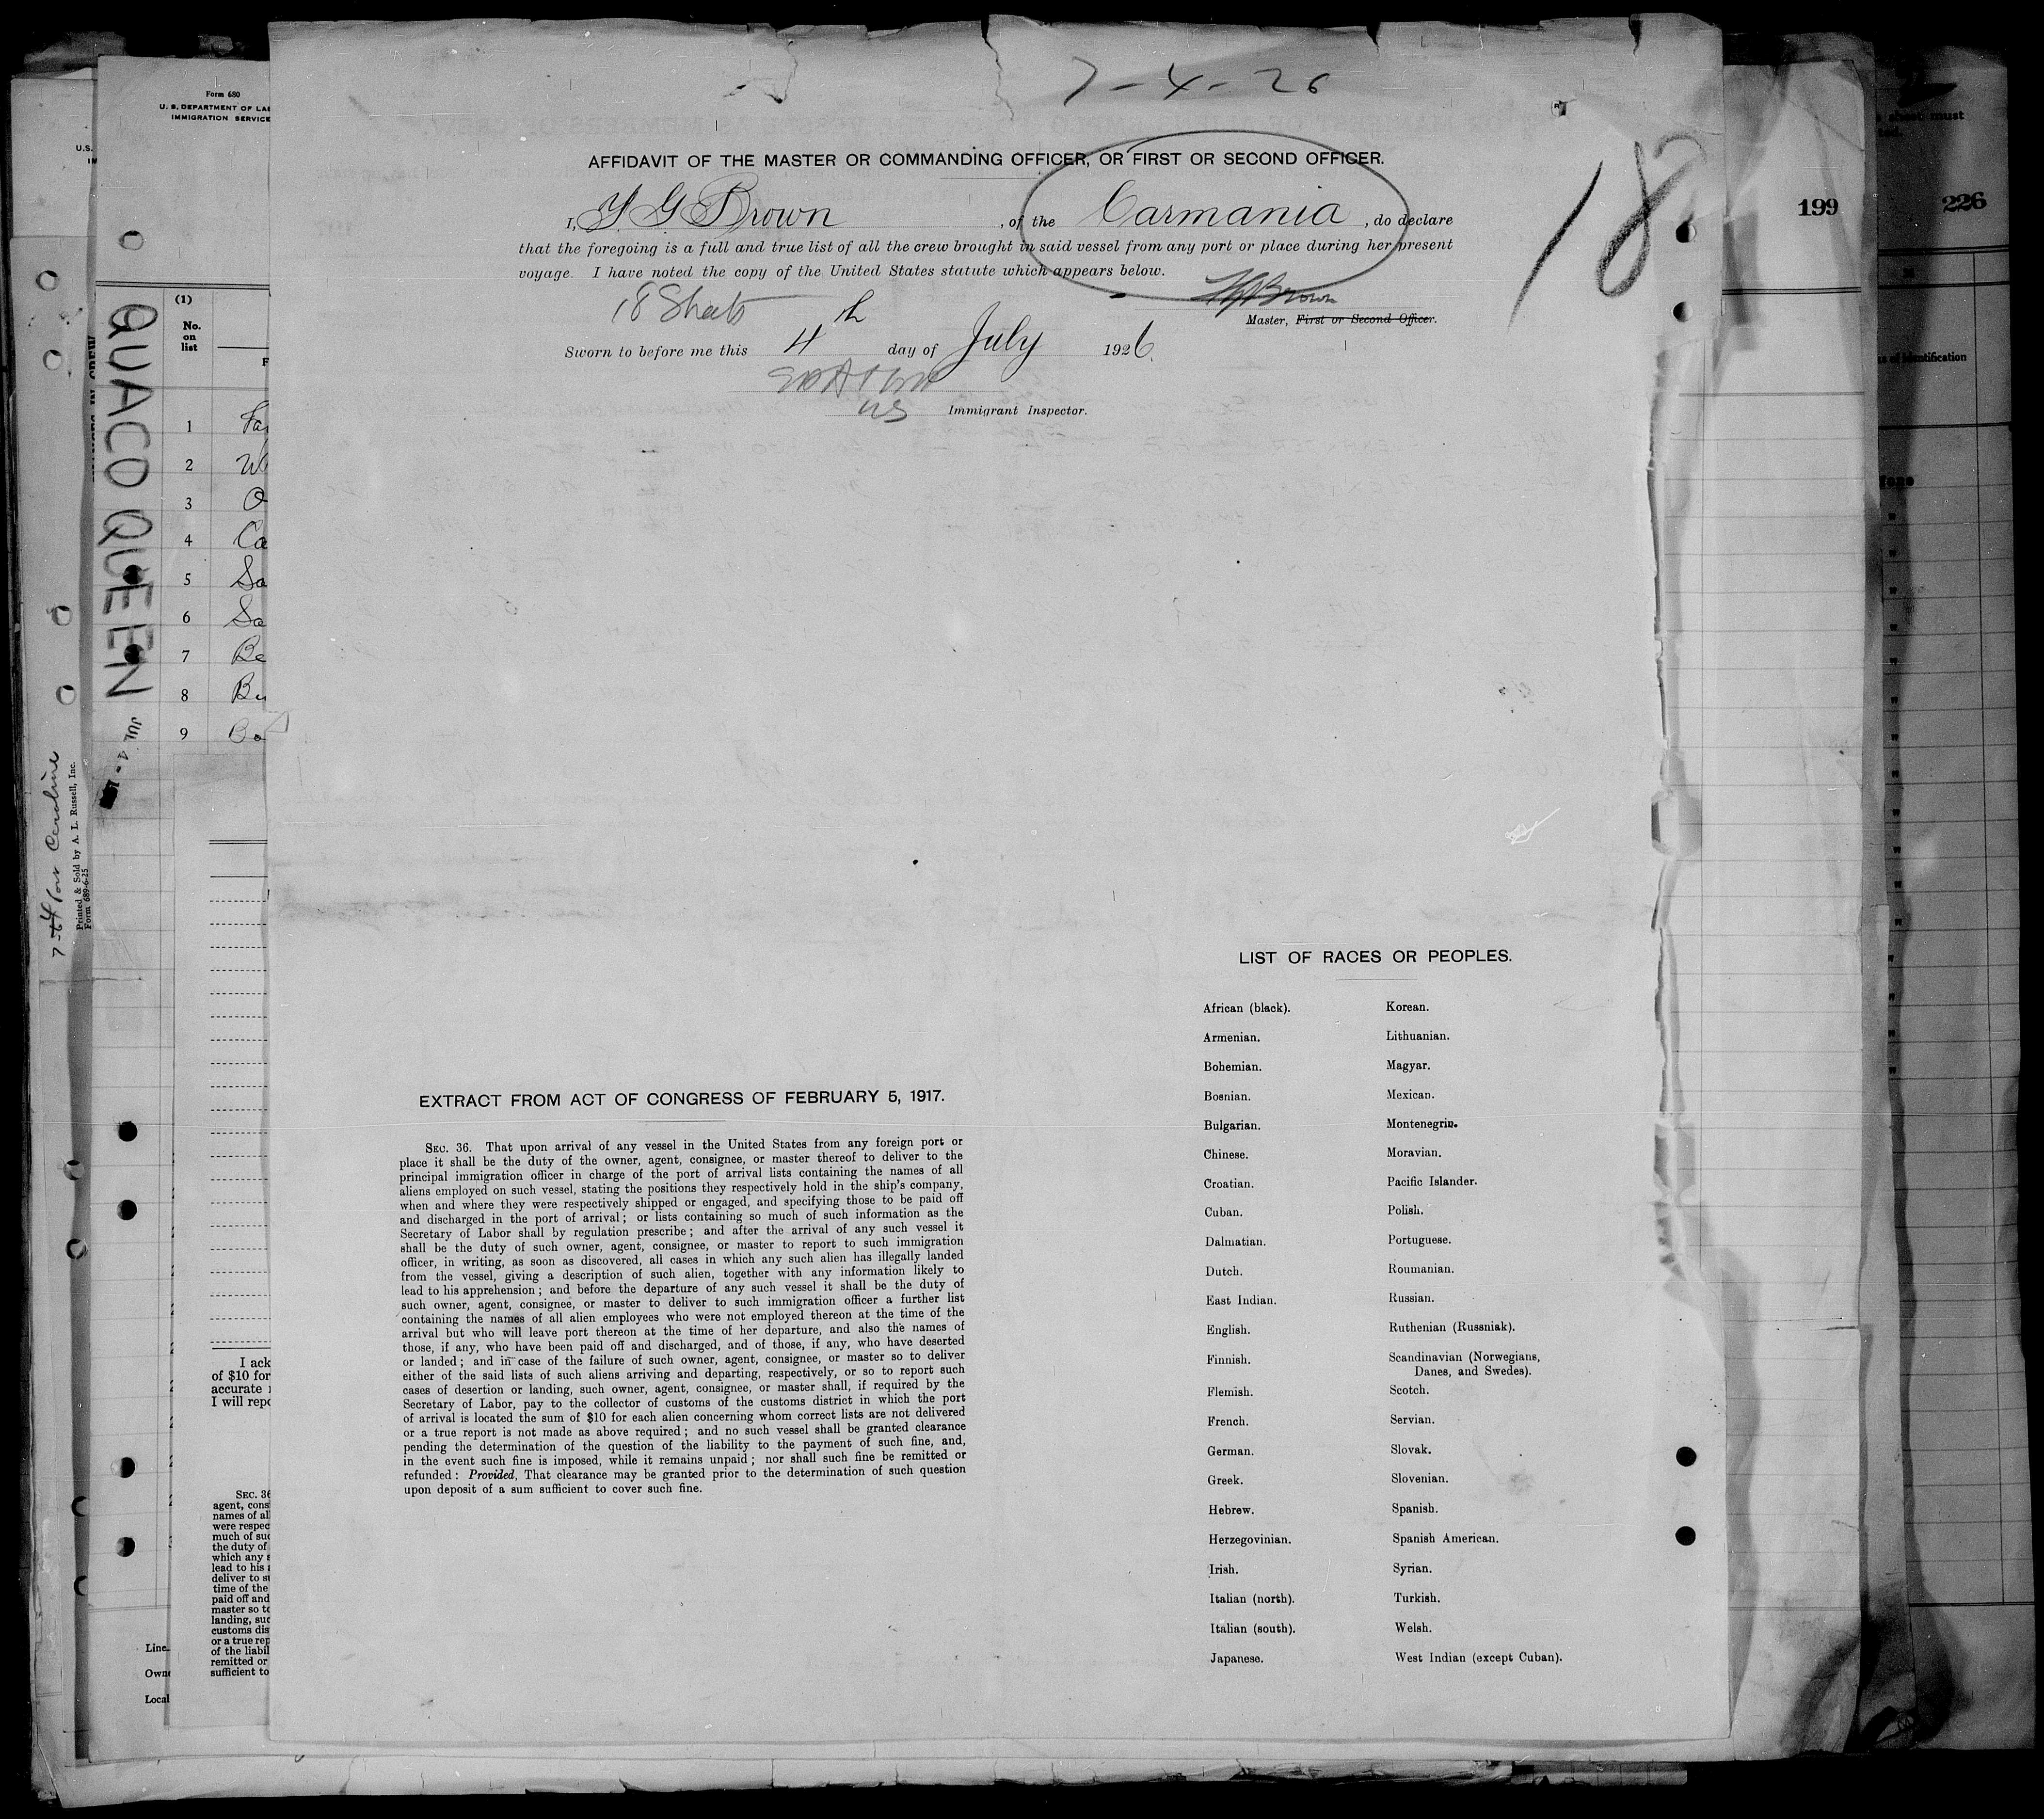 7-4-26
AFFIDAVIT OF THE MASTER OR COMMANDING OFFICER, OR FIRST OR SECOND OFFICER.
18
I, G Brown, of the Carmania, do declare
that the foregoing is a full and true list of all the crew brought in said vessel from any port or place during her present
voyage. I have noted the copy of the United States statute which appears below.
18 Sheets
Brown
Master, First or Second Officer.
Sworn to before me this 4th day of July 1926.
Immigrant Inspector.
LIST OF RACES OR PEOPLES.
African (black).
Armenian.
Bohemian.
Bosnian.
Bulgarian.
Chinese.
Croatian.
Cuban.
Dalmatian.
Dutch.
East Indian.
English.
Finnish.
Flemish.
French.
German.
Greek.
Hebrew.
Herzegovinian.
Irish.
Italian (north).
Italian (south).
Japanese.
Korean.
Lithuanian.
Magyar.
Mexican.
Montenegrin.
Moravian.
Pacific Islander.
Polish.
Portuguese.
Roumanian.
Russian.
Ruthenian (Russniak).
Scandinavian (Norwegians,
Danes, and Swedes).
Scotch.
Servian.
Slovak.
Slovenian.
Spanish.
Spanish American.
Syrian.
Turkish.
Welsh.
West Indian (except Cuban).
EXTRACT FROM ACT OF CONGRESS OF FEBRUARY 5, 1917.
SEC. 36. That upon arrival of any vessel in the United States from any foreign port or
place it shall be the duty of the owner, agent, consignee, or master thereof to deliver to the
principal immigration officer in charge of the port of arrival lists containing the names of all
aliens employed on such vessel, stating the positions they respectively hold in the ship's company,
when and where they were respectively shipped or engaged, and specifying those to be paid off
and discharged in the port of arrival; or lists containing so much of such information as the
Secretary of Labor shall by regulation prescribe; and after the arrival of any such vessel it
shall be the duty of such owner, agent, consignee, or master to report to such immigration
officer, in writing, as soon as discovered, all cases in which any such alien has illegally landed
from the vessel, giving a description of such alien, together with any information likely to
lead to his apprehension; and before the departure of any such vessel it shall be the duty of
such owner, agent, consignee, or master to deliver to such immigration officer a further list
containing the names of all alien employees who were not employed thereon at the time of the
arrival but who will leave port thereon at the time of her departure, and also the names of
those, if any, who have been paid off and discharged, and of those, if any, who have deserted
or landed; and in case of the failure of such owner, agent, consignee, or master so to deliver
either of the said lists of such aliens arriving and departing, respectively, or so to report such
cases of desertion or landing, such owner, agent, consignee, or master shall, if required by the
Secretary of Labor, pay to the collector of customs of the customs district in which the port
of arrival is located the sum of $10 for each alien concerning whom correct lists are not delivered
or a true report is not made as above required; and no such vessel shall be granted clearance
pending the determination of the question of the liability to the payment of such fine, and,
in the event such fine is imposed, while it remains unpaid; nor shall such fine be remitted or
refunded: Provided, That clearance may be granted prior to the determination of such question
upon deposit of a sum sufficient to cover such fine.
Form 680
U. S. DEPARTMENT OF LA
IMMIGRATION SERVICE
U.S.
QUACO QUEEN
JUL 4
(1)
No.
on
list
1 Fa
2 W
3 O
4 Ca
5 Sa
6 Sa
7 Be
8 Bu
9 Bo
Printed & Sold by A. L. Russell, Inc.
Form 689-6-25
I ack
of $10 for
accurate
I will repo
SEC. 36
agent, cons
names of al
were respec
much of suc
the duty of
which any
lead to his
deliver to s
time of the
paid off and
master so to
landing, suc
customs dis
or a true rep
of the liabil
remitted or
sufficient to
Line
Own
Local
199
226
sheet must
ted.
of identification